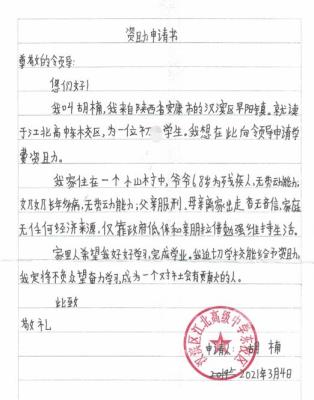 资助申请书
尊敬的领导:
您们好!
我叫胡楠,我来自陕西省安康市的汉滨区早阳镇。就读
于江北高中东校区,为一位初 学生。我想在此向领导申请学
费资助。
我家住在一个小山村中,爷爷68岁为残疾人,无劳动能力;
奶奶长年多病,无劳动能力;父亲服刑、母亲离家出走 音无音信,家庭
无任何经济来源,仅靠政府低保和亲朋 借勉强维持生活。
家里人希望我好好学习,完成学业。我迫切学校能给予资助,
我定将不负众望奋力学习,成为一个对社会有贡献的人。
此致
敬礼
汉滨区江北高级中学东校区
申请人:胡楠
2021年3月4日